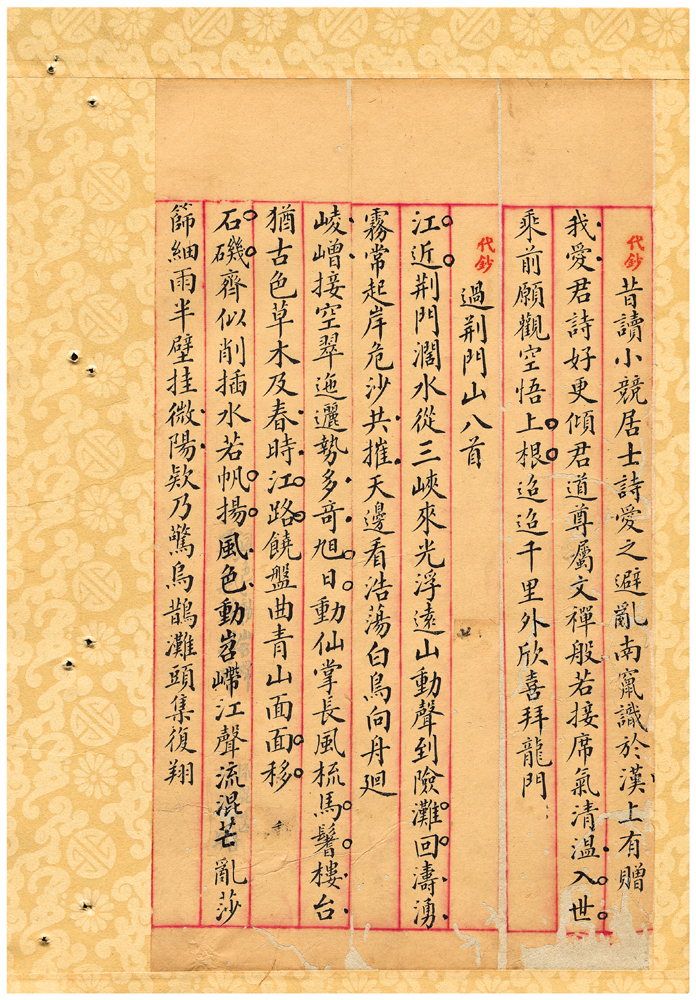 代鈔
昔讀小競居士詩愛之避亂南竄識於漢上有贈
我愛君詩好更傾君道尊屬文禪般若接席氣清溫入世
乘前願觀空悟上根迢迢千里外欣喜拜龍門
代鈔
過荆門山八首
江近荆門濶水從三峽來光浮遠山動聲到險灘回濤湧
霧常起岸危沙共摧天邊看浩蕩白鳥向丹迴
崚嶒接空翠迤邐勢多奇旭日動仙掌長風梳馬鬐樓台
猶古色草木及春時江路饒盤曲青山面面移
石磯齊似削插水若帆揚風色動岧嶹江聲流混芒亂莎
篩細雨半壁挂微陽欵乃驚烏鵲灘頭集復翔